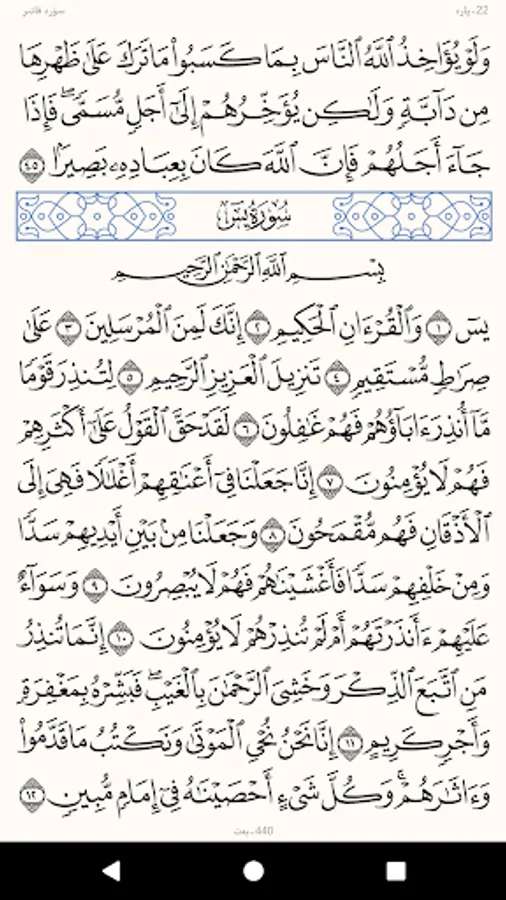 22ـ پاره سوره فاطر
وَلَوْ يُؤَاخِذُ ٱللَّهُ ٱلنَّاسَ بِمَا كَسَبُوا۟ مَا تَرَكَ عَلَىٰ ظَهْرِهَا
مِن دَآبَّةٍ وَلَٰكِن يُؤَخِّرُهُمْ إِلَىٰٓ أَجَلٍ مُّسَمًّى ۖ فَإِذَا
جَآءَ أَجَلُهُمْ فَإِنَّ ٱللَّهَ كَانَ بِعِبَادِهِۦ بَصِيرًۢا ٤٥
سُورَةُ يسٓ
بِسْمِ ٱللَّهِ ٱلرَّحْمَٰنِ ٱلرَّحِيمِ
يسٓ ١ وَٱلْقُرْءَانِ ٱلْحَكِيمِ ٢ إِنَّكَ لَمِنَ ٱلْمُرْسَلِينَ ٣ عَلَىٰ
صِرَٰطٍ مُّسْتَقِيمٍ ٤ تَنزِيلَ ٱلْعَزِيزِ ٱلرَّحِيمِ ٥ لِتُنذِرَ قَوْمًا
مَّآ أُنذِرَ ءَابَآؤُهُمْ فَهُمْ غَٰفِلُونَ ٦ لَقَدْ حَقَّ ٱلْقَوْلُ عَلَىٰٓ أَكْثَرِهِمْ
فَهُمْ لَا يُؤْمِنُونَ ٧ إِنَّا جَعَلْنَا فِىٓ أَعْنَٰقِهِمْ أَغْلَٰلًا فَهِىَ إِلَى
ٱلْأَذْقَانِ فَهُم مُّقْمَحُونَ ٨ وَجَعَلْنَا مِنۢ بَيْنِ أَيْدِيهِمْ سَدًّا
وَمِنْ خَلْفِهِمْ سَدًّا فَأَغْشَيْنَٰهُمْ فَهُمْ لَا يُبْصِرُونَ ٩ وَسَوَآءٌ
عَلَيْهِمْ ءَأَنذَرْتَهُمْ أَمْ لَمْ تُنذِرْهُمْ لَا يُؤْمِنُونَ ١٠ إِنَّمَا تُنذِرُ
مَنِ ٱتَّبَعَ ٱلذِّكْرَ وَخَشِىَ ٱلرَّحْمَٰنَ بِٱلْغَيْبِ ۖ فَبَشِّرْهُ بِمَغْفِرَةٍ
وَأَجْرٍ كَرِيمٍ ١١ إِنَّا نَحْنُ نُحْىِ ٱلْمَوْتَىٰ وَنَكْتُبُ مَا قَدَّمُوا۟
وَءَاثَٰرَهُمْ ۚ وَكُلَّ شَىْءٍ أَحْصَيْنَٰهُ فِىٓ إِمَامٍ مُّبِينٍ ١٢
440